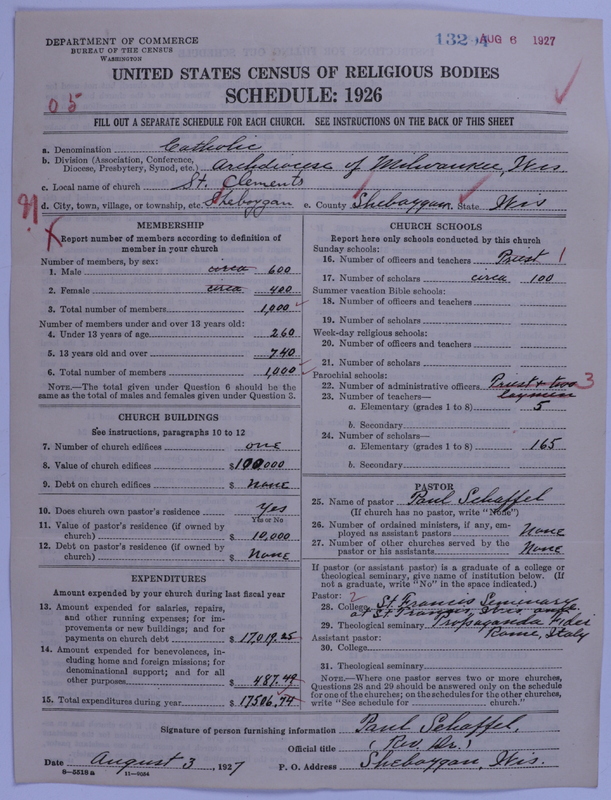 DEPARTMENT OF COMMERCE
BUREAU OF THE CENSUS
WASHINGTON
AUG 6 1927
UNITED STATES CENSUS OF RELIGIOUS BODIES
SCHEDULE: 1926
05
FILL OUT A SEPARATE SCHEDULE FOR EACH CHURCH. SEE INSTRUCTIONS ON THE BACK OF THIS SHEET
a. Denomination Catholic
b. Division (Association, Conference,
Diocese, Presbytery, Synod, etc.) Archdiocese of Milwaukee, Wis.
c. Local name of church St. Clements
d. City, town, village, or township, etc. Sheboygan e. County Sheboygan State Wis
MEMBERSHIP
Report number of members according to definition of
member in your church
Number of members, by sex:
1. Male circa 600
2. Female circa 400
3. Total number of members 1,000
Number of members under and over 13 years old:
4. Under 13 years of age 260
5. 13 years old and over 740
6. Total number of members 1,000
NOTE.—The total given under Question 6 should be the
same as the total of males and females given under Question 3.
CHURCH BUILDINGS
See instructions, paragraphs 10 to 12
7. Number of church edifices one
8. Value of church edifices $100,000
9. Debt on church edifices $ None
10. Does church own pastor's residence Yes
Yes or No
11. Value of pastor's residence (if owned by
church) $ 10,000
12. Debt on pastor's residence (if owned by
church) $ None
EXPENDITURES
Amount expended by your church during last fiscal year
13. Amount expended for salaries, repairs,
and other running expenses; for im-
provements or new buildings; and for
payments on church debt $ 17,019.25
14. Amount expended for benevolences, in-
cluding home and foreign missions; for
denominational support; and for all
other purposes $ 487.49
15. Total expenditures during year $ 17506.74
CHURCH SCHOOLS
Report here only schools conducted by this church
Sunday schools:
16. Number of officers and teachers Priest 1
17. Number of scholars circa 100
Summer vacation Bible schools:
18. Number of officers and teachers
19. Number of scholars
Week-day religious schools:
20. Number of officers and teachers
21. Number of scholars
Parochial schools:
22. Number of administrative officers Priest + two 3
laymen
23. Number of teachers—
a. Elementary (grades 1 to 8) 5
b. Secondary
24. Number of scholars—
a. Elementary (grades 1 to 8) 165
b. Secondary
PASTOR
25. Name of pastor Paul Schaffel
(If church has no pastor, write "None")
26. Number of ordained ministers, if any, em-
ployed as assistant pastors None
27. Number of other churches served by the
pastor or his assistants None
If pastor (or assistant pastor) is a graduate of a college or
theological seminary, give name of institution below. (If
not a graduate, write "No" in the space indicated.)
Pastor: 2
28. College St. Francis Seminary
at St Francis,
29. Theological seminary Propaganda Fidei
Rome, Italy
Assistant pastor:
30. College
31. Theological seminary
NOTE.—Where one pastor serves two or more churches,
Questions 28 and 29 should be answered only on the schedule
for one of the churches; on the schedules for the other churches,
write "See schedule for church."
Signature of person furnishing information Paul Schaffel,
Official title (Rev. Dr.)
Date August 3, 1927 P. O. Address Sheboygan, Wis.
8-5518a 11-9034